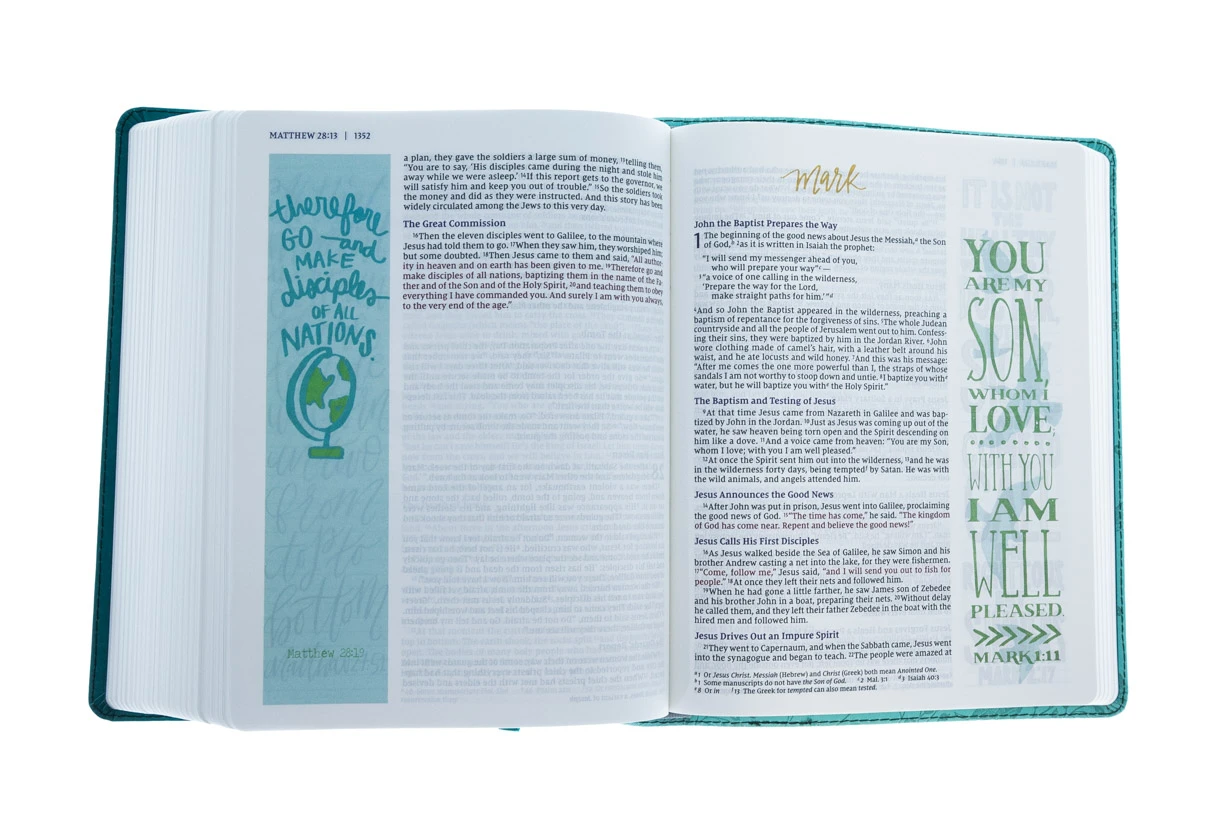 MATTHEW 28:13 | 1352
therefore
GO and
MAKE
disciples
OF ALL
NATIONS.
Matthew 28:19
a plan, they gave the soldiers a large sum of money, 13telling them,
"You are to say, 'His disciples came during the night and stole him
away while we were asleep.' 14If this report gets to the governor, we
will satisfy him and keep you out of trouble." 15So the soldiers took
the money and did as they were instructed. And this story has been
widely circulated among the Jews to this very day.
The Great Commission
16Then the eleven disciples went to Galilee, to the mountain where
Jesus had told them to go. 17When they saw him, they worshiped him;
but some doubted. 18Then Jesus came to them and said, "All author-
ity in heaven and on earth has been given to me. 19Therefore go and
make disciples of all nations, baptizing them in the name of the Fa-
ther and of the Son and of the Holy Spirit, 20and teaching them to obey
everything I have commanded you. And surely I am with you always,
to the very end of the age."
Mark
John the Baptist Prepares the Way
1 The beginning of the good news about Jesus the Messiah,a the Son
of God,b 2as it is written in Isaiah the prophet:
"I will send my messenger ahead of you,
who will prepare your way"c—
3"a voice of one calling in the wilderness,
'Prepare the way for the Lord,
make straight paths for him.'"d
4And so John the Baptist appeared in the wilderness, preaching a
baptism of repentance for the forgiveness of sins. 5The whole Judean
countryside and all the people of Jerusalem went out to him. Confess-
ing their sins, they were baptized by him in the Jordan River. 6John
wore clothing made of camel's hair, with a leather belt around his
waist, and he ate locusts and wild honey. 7And this was his message:
"After me comes the one more powerful than I, the straps of whose
sandals I am not worthy to stoop down and untie. 8I baptize you withe
water, but he will baptize you withe the Holy Spirit."
The Baptism and Testing of Jesus
9At that time Jesus came from Nazareth in Galilee and was bap-
tized by John in the Jordan. 10Just as Jesus was coming up out of the
water, he saw heaven being torn open and the Spirit descending on
him like a dove. 11And a voice came from heaven: "You are my Son,
whom I love; with you I am well pleased."
12At once the Spirit sent him out into the wilderness, 13and he was
in the wilderness forty days, being temptedf by Satan. He was with
the wild animals, and angels attended him.
Jesus Announces the Good News
14After John was put in prison, Jesus went into Galilee, proclaiming
the good news of God. 15"The time has come," he said. "The kingdom
of God has come near. Repent and believe the good news!"
Jesus Calls His First Disciples
16As Jesus walked beside the Sea of Galilee, he saw Simon and his
brother Andrew casting a net into the lake, for they were fishermen.
17"Come, follow me," Jesus said, "and I will send you out to fish for
people." 18At once they left their nets and followed him.
19When he had gone a little farther, he saw James son of Zebedee
and his brother John in a boat, preparing their nets. 20Without delay
he called them, and they left their father Zebedee in the boat with the
hired men and followed him.
Jesus Drives Out an Impure Spirit
21They went to Capernaum, and when the Sabbath came, Jesus went
into the synagogue and began to teach. 22The people were amazed at
a 1 Or Jesus Christ. Messiah (Hebrew) and Christ (Greek) both mean Anointed One.
b 1 Some manuscripts do not have the Son of God. c 2 Mal. 3:1 d 3 Isaiah 40:3
e 8 Or in f 13 The Greek for tempted can also mean tested.
YOU
ARE MY
SON,
WHOM I
LOVE,
WITH YOU
I AM
WELL
PLEASED.
MARK 1:11